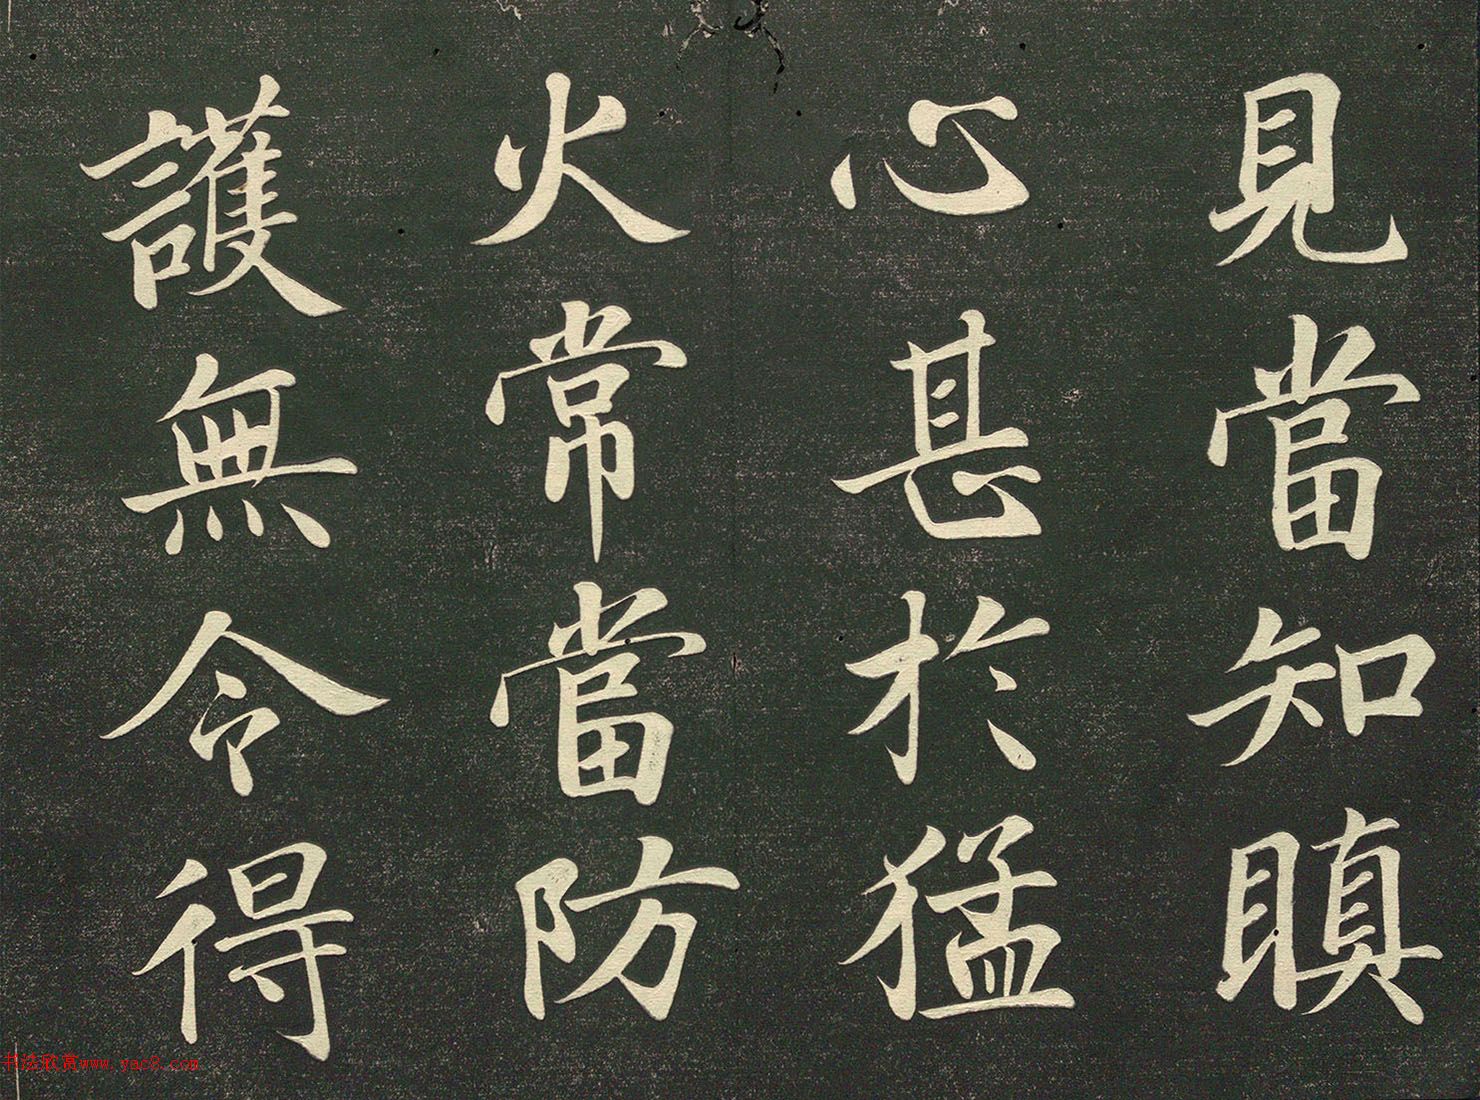 見當知瞋
心甚於猛
火常當防
護無令得
书法欣赏www.yac8.com